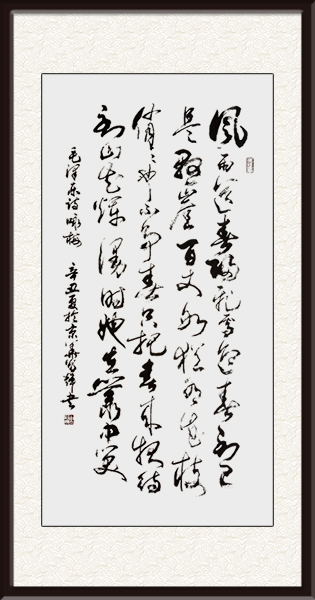 風雨送春歸飛雪迎春到已
是懸崖百丈冰猶有花枝
俏々也不争春只把春来報待
到山花爛漫時她在叢中笑
毛澤東詩咏梅 辛丑夏於京華 書